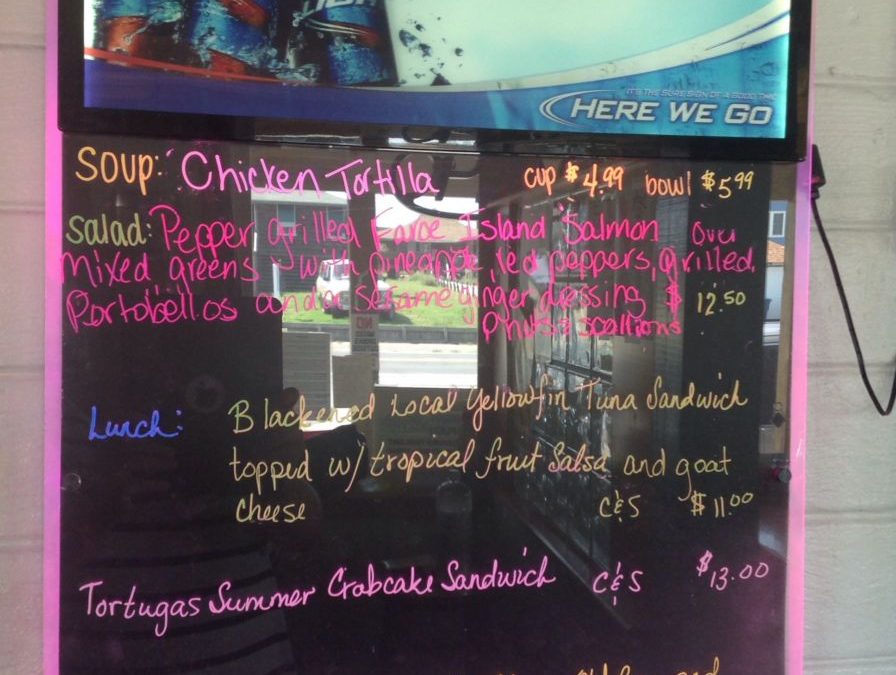 LIGHT
IT'S THE SURE SIGN OF A GOOD TIME
HERE WE GO
Soup: Chicken Tortilla cup $4.99 bowl $5.99
Salad: Pepper grilled Faroe Island Salmon over
mixed greens with pineapple, red peppers, grilled
Portobellos and sesame ginger dressing $12.50
scallions
Lunch: Blackened Local Yellowfin Tuna Sandwich
topped w/ tropical fruit salsa and goat
cheese C&S $11.00
Tortugas Summer Crabcake Sandwich C&S $13.00